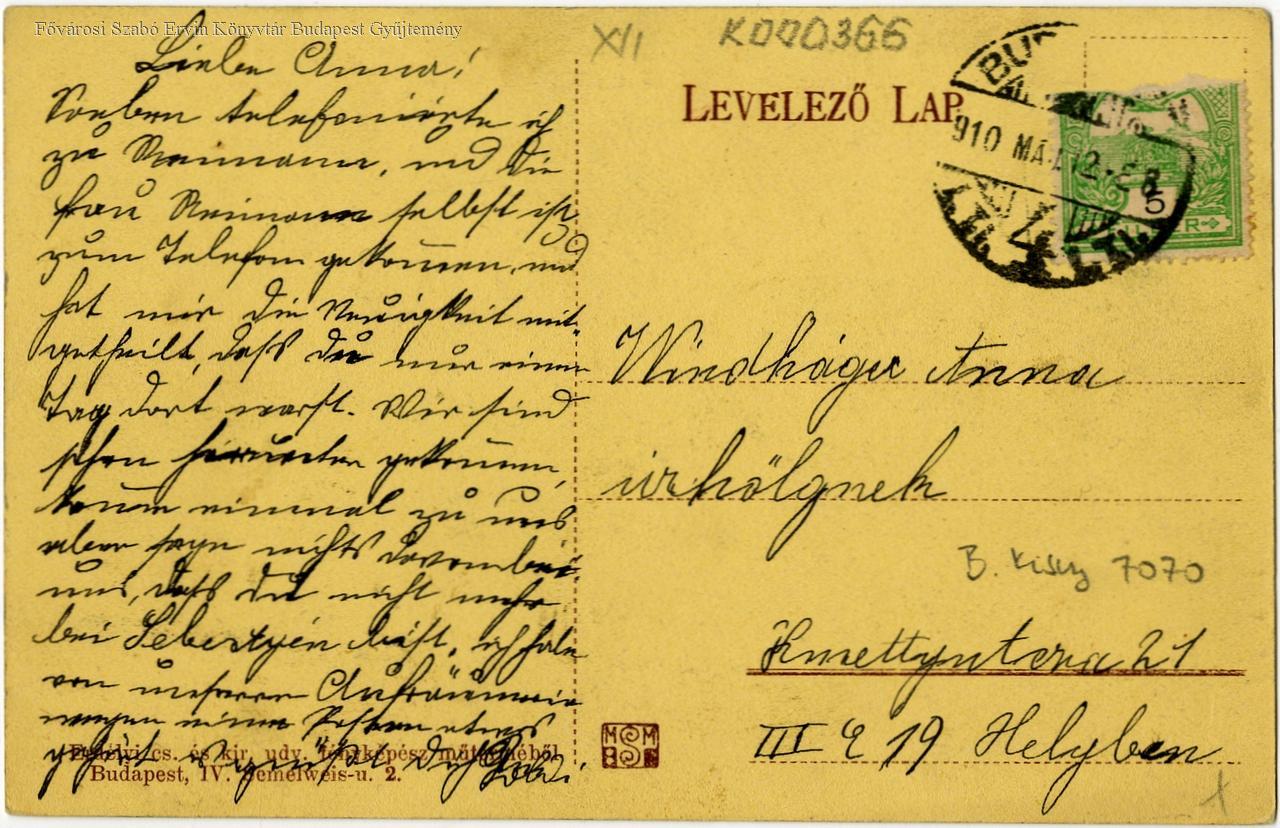 Fővárosi Szabó Ervin Könyvtár Budapest Gyűjtemény
XII
K000366
LEVELEZŐ LAP.
BUD
910 MÁJ 12
5
Liebe Anna!
Soeben telefonierte ich
zu Neimann, und die
Frau Neimann selbst ist
zum Telefon gekommen, und
hat mir die Neuigkeit mit-
getheilt, dass du nur einen
Tag dort warst. Wir sind
schon herunter gekommen,
komm einmal zu uns
aber sage nichts davon bei
uns, dass du nicht mehr
bei Sebestyén bist, ich habe
von unserer Aufräumerin
wegen einen Posten etwas
Windháger Anna
úrhölgnek
B. Kisky 7070
Kmettyutcza 21
III E 19 Helyben
MSM
Erdélyi cs. és kir. udv. fényképész műterméből
Budapest, IV. Semelweis-u. 2.